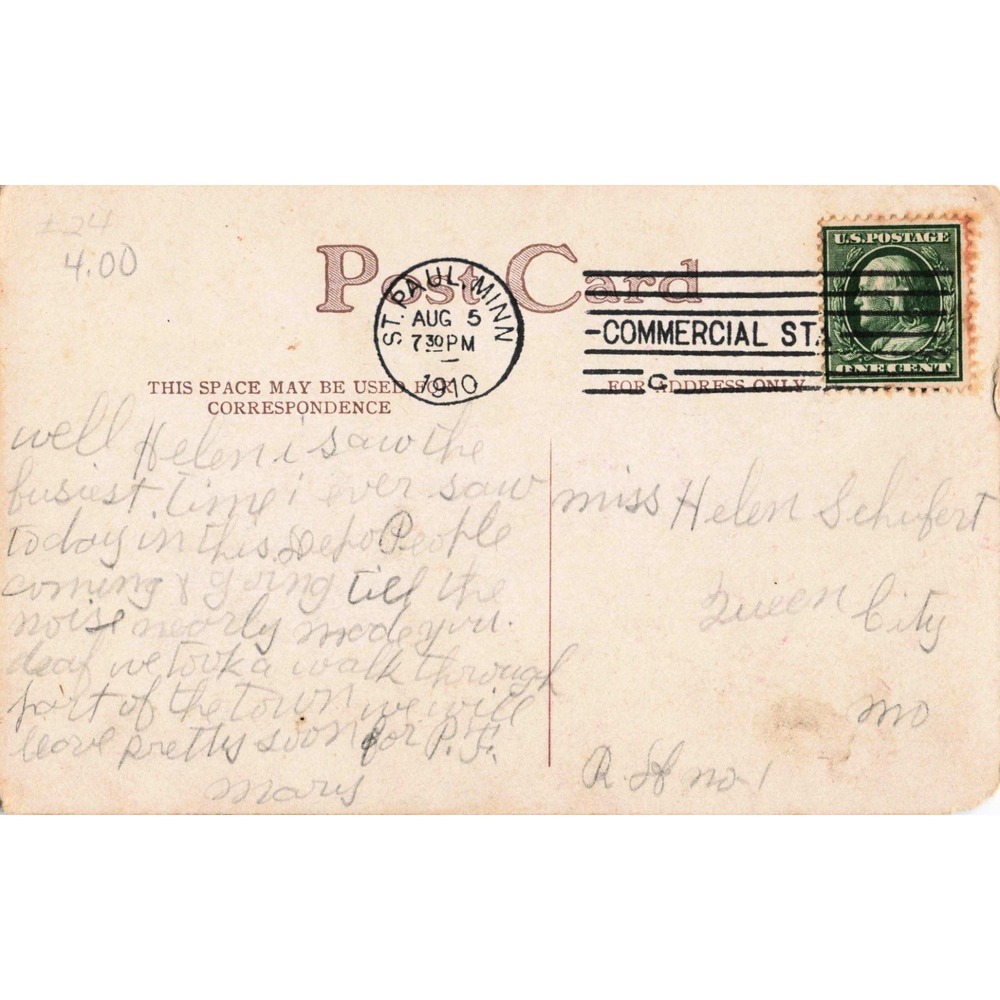 ±24
4.00
Post Card
ST. PAUL, MINN
AUG 5
7 30 PM
1910
-COMMERCIAL STA.
C
U.S. POSTAGE
ONE CENT
THIS SPACE MAY BE USED FOR
CORRESPONDENCE
FOR ADDRESS ONLY
well Helen i saw the
busiest time i ever saw
today in this Depo People
coming & going till the
noise nearly made you
deaf we took a walk through
part of the town we will
leave pretty soon for P.F.
Mary
miss Helen Schufert
Queen City
mo
R. no. 1